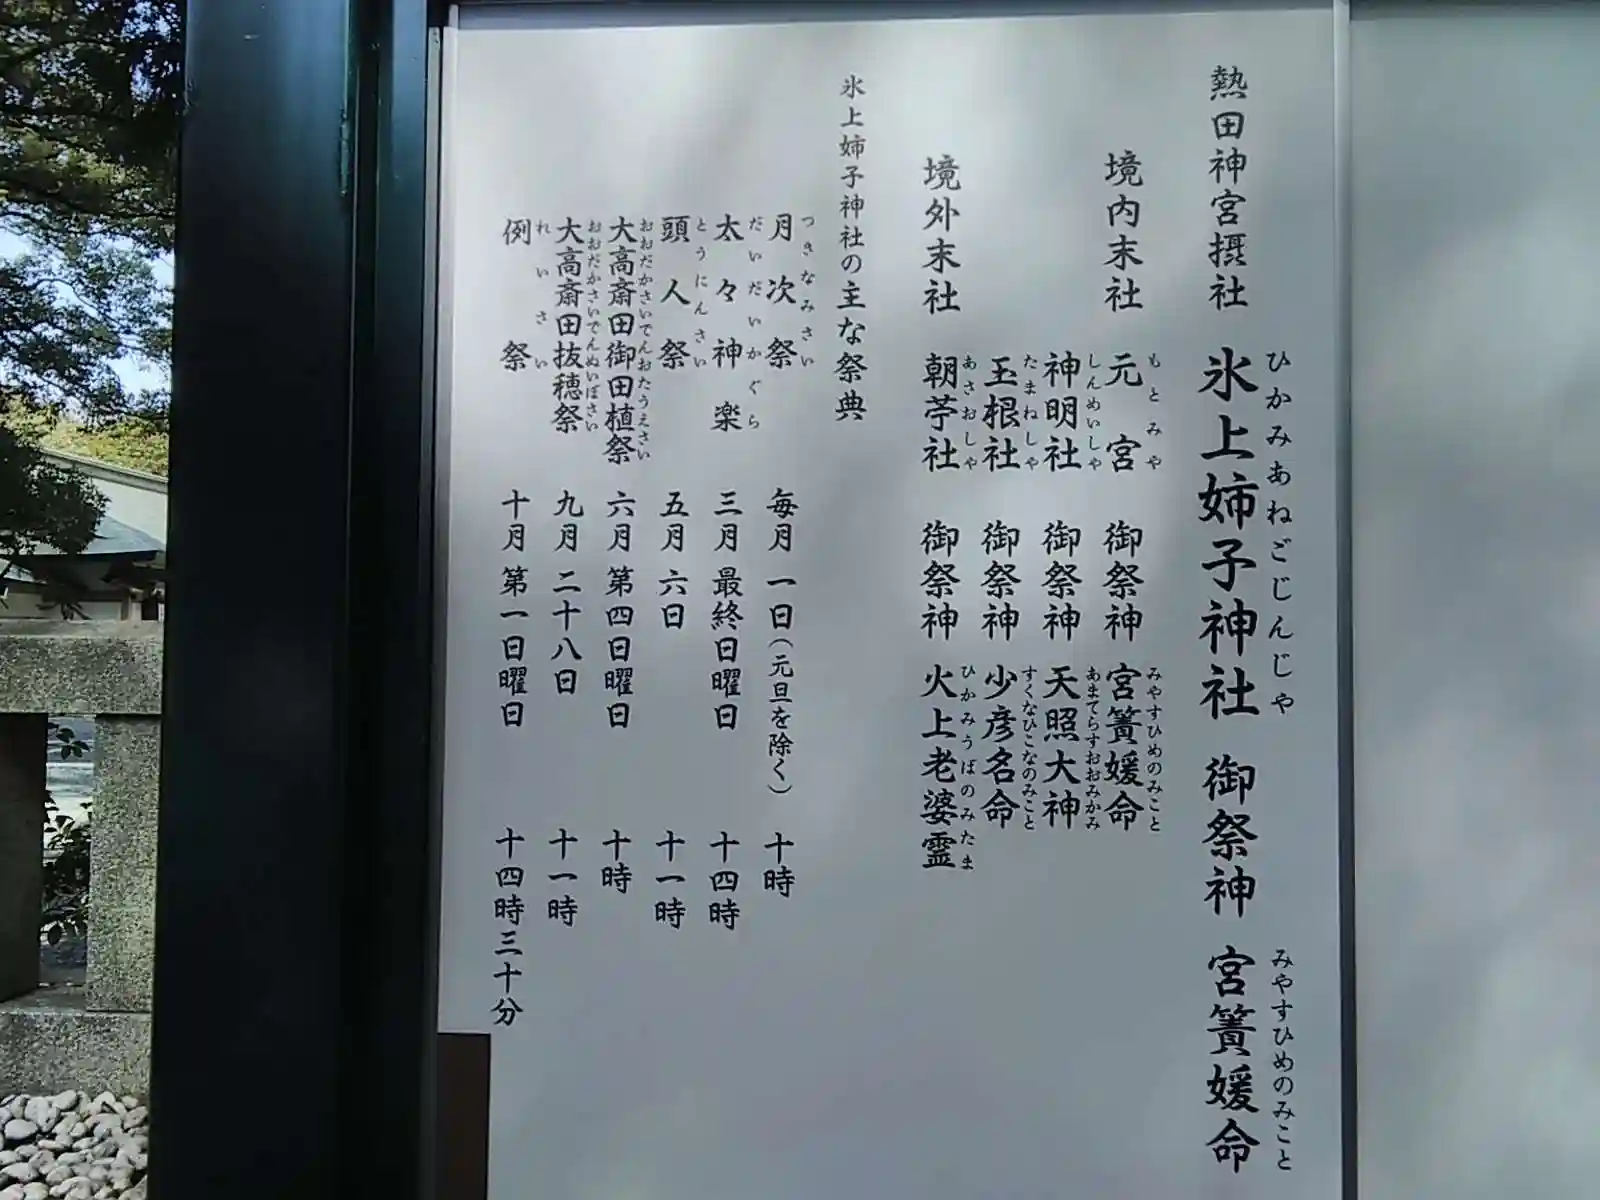 熱田神宮摂社 氷上姉子神社 御祭神 宮簀媛命
ひかみあねごじんじゃ みやすひめのみこと
境内末社 元宮 御祭神 宮簀媛命
もとみや みやすひめのみこと
神明社 御祭神 天照大神
しんめいしゃ あまてらすおおみかみ
玉根社 御祭神 少彦名命
たまねしゃ すくなひこなのみこと
境外末社 朝苧社 御祭神 火上老婆霊
あさおしゃ ひかみうばのみたま
氷上姉子神社の主な祭典
月次祭 毎月 一日(元旦を除く) 十時
つきなみさい
太々神楽 三月 最終日曜日 十四時
だいだいかぐら
頭人祭 五月 六日 十一時
とうにんさい
大高斎田御田植祭 六月 第四日曜日 十時
おおだかさいでんおたうえさい
大高斎田抜穂祭 九月 二十八日 十一時
おおだかさいでんぬいぼさい
例祭 十月 第一日曜日 十四時三十分
れいさい